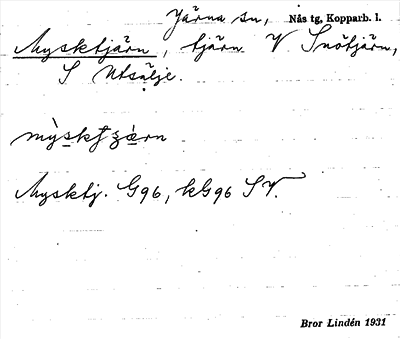 Järna sn, Nås tg, Kopparb. l.
Mysktjärn, tjärn V Snötjärn,
S Utsälje.
mỳskt̯ʒæ̀rn
Mysktj. G96, kG96 SV.
Bror Lindén 1931